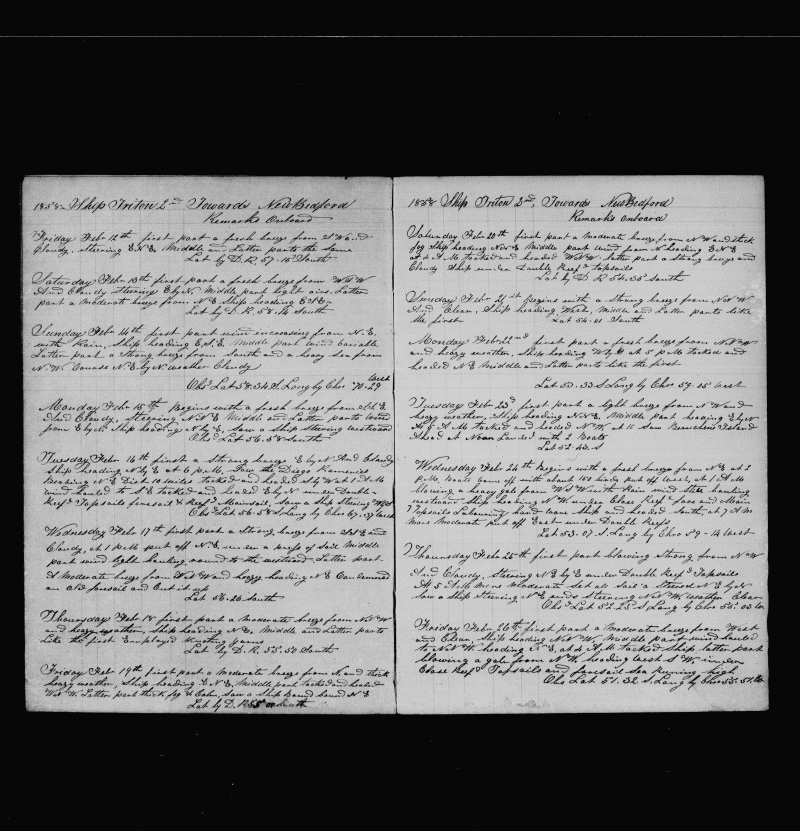 1858. Ship Triton 2nd Towards New Bedford
Remarks Onboard
Friday Feb 12th first part a fresh breeze from
Cloudy, Steering E.N.E. Middle and Latter parts the same
Lat by D.R. 57.15 South
Saturday Febr 13th first part a fresh breeze from W.S.W
And Cloudy Steering E by N. Middle part light airs. Latter
part a moderate breeze from N.E. Ship heading
Lat by D.R. 58.14 South
Sunday Febr 14th first part wind increasing from N.E.
with Rain, Ship heading E.S.E. Middle part wind variable
Latter part a Strong breeze from South and a heavy sea from
N.W. Course N.E. by N. weather Cloudy
Chr Lat 58.34 S. Long by Chr. 70.29 West
Monday Febr 15th Begins with a fresh breeze from
And Cloudy, Steering Middle and Latter parts wind
from E by N. Ship heading N. by E. Saw a Ship steering westward
Lat 56.58 South
Tuesday Febr 16th first a Strong breeze E by N And Cloudy
Ship heading N by E at 6 P.M. Saw the Diego Ramiries
Bearing N.E. Dist 10 miles tacked and headed S by W at 1 A.M
wind hauled to S.E. tacked and headed E by N under Double
Reefd Topsails foresail & Reefd Mainsail, Saw a Ship Steering West
Lat 56.58 S. Long by Chro 67.37 West
Wednesday Febr 17th first part a Strong breeze from
Cloudy, at 1 P.M put off N.E. under a press of Sail Middle
part wind light hauling round to the westward Latter part
A moderate breeze from and heavy heading N.E. Condemned
an Old foresail and Cut it up
Lat 56.26 South
Thursday Febr 18 first part a moderate breeze from N.N.W
and heavy weather, Ship heading N.E, Middle and Latter parts
Like the first Employed Knotting yarns
Lat by D.R. 55.50 South
Friday Feb 19th first part a Moderate breeze from N. and thick
heavy weather, Ship heading E.N.E. Middle part tacked and headed
W. Latter part thick fog & Calm, Saw a Ship Bound N.E
Lat by D.R 55 South
1858 Ship Triton 2nd, Towards New Bedford
Remarks onboard
Saturday Febr 20th first part a Moderate breeze from N.W and thick
fog Ship heading Middle part wind from N heading E.N.E
at 4 A.M tacked and headed W.N.W. latter part a Strong breeze and
Cloudy Ship under Double Reefd Topsails
Lat by D.R. 54.35 South
Sunday Feb. 21st Begins with a Strong breeze from
And Clear, Ship heading West, Middle and Latter parts like
the first Lat 54.01 South
Monday Feb 22nd first part a fresh breeze from N.N.W
and heavy weather, Ship heading W by at 5 P.M tacked and
headed N.E Middle and Latter parts like the first
Lat 53.33 S Long by Chro 59.15 West
Tuesday Feb 23d first part a light breeze from N.W and
heavy weather, Ship heading Middle part heading E by N
At 5 A.M tacked and headed N.W. at 10 Saw Beauchene Island
Ahead at Noon Landed with 2 Boats
Lat 52.40 S
Wednesday Febr 24th Begins with a fresh breeze from N.E at 2
P.M. Boats Came off with about 150 birds put off West, at 1 A.M
Blowing a heavy gale from W.S.W with Rain wind still hauling
westward Ship heading N.W. under Close Reefd fore and Main
Topsails Ship and headed South, at 7 A.M
More Moderate put off East under Double Reefs
Lat 53.07 S. Long by Chro 59-14 West
Thursday Febr 25th first part blowing Strong from N.W
And Cloudy, Steering N.E by E under Double Reefd Topsails
At 5 A.M More Moderate Set all Sail & Steered N.E by N
Saw a Ship Steering N.E ends Steering weather Clear
Lat 52.25 S Long by Chro
Friday Febr 26th first part a moderate breeze from West
and Clear, Ship heading Middle part wind hauled
to heading at 4 A.M Tacked Ship latter part
blowing a gale from N.W. heading West S.W. under
Close Reefd Topsails and foresail sea running high
Chr Lat 51.32 S. Long by Chro 55.51 W